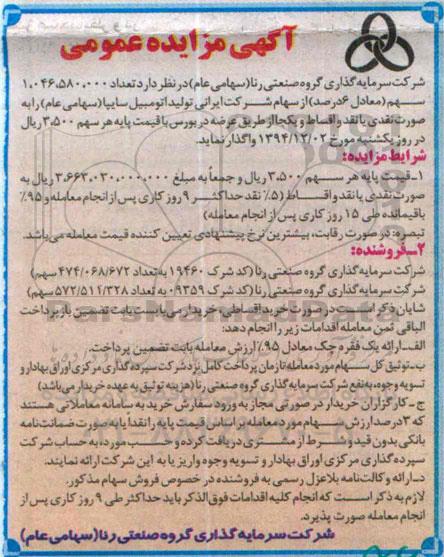 آگهی مزایده عمومی
شرکت سرمایه گذاری گروه صنعتی رنا(سهامی عام) در نظر دارد تعداد ۱.۰۴۶.۵۸۰.۰۰۰
سهم (معادل ۶ درصد) از سهام شرکت ایرانی تولید اتومبیل سایپا (سهامی عام) را به
صورت نقدی یا نقد و اقساط و یکجا از طریق عرضه در بورس با قیمت پایه هر سهم ۳.۵۰۰ ریال
در روز یکشنبه مورخ ۱۳۹۴/۱۲/۰۲ واگذار نماید.
شرایط مزایده:
۱-قیمت پایه هر سهم ۳.۵۰۰ ریال و جمعا به مبلغ ۳.۶۶۳.۰۳۰.۰۰۰.۰۰۰ ریال به
صورت نقدی یا نقد و اقساط (۵٪ نقد حداکثر ۹ روز کاری پس از انجام معامله و ۹۵٪
باقیمانده طی ۱۵ روز کاری پس از انجام معامله)
تبصره: در صورت رقابت، بیشترین نرخ پیشنهادی تعیین کننده قیمت معامله می‌باشد.
۲-فروشنده:
شرکت سرمایه گذاری گروه صنعتی رنا (کد شرک ۱۹۴۶۰ به تعداد ۴۷۴/۰۶۸/۶۷۲ سهم)
شرکت سرمایه گذاری گروه صنعتی رنا (کد شرک ۰۹۳۵۹ به تعداد ۵۷۲/۵۱۱/۳۲۸ سهم)
شایان ذکر است در صورت خرید اقساطی، خریدار می‌بایست بابت تضمین بازپرداخت
الباقی ثمن معامله اقدامات زیر را انجام دهد:
الف-ارائه یک فقره چک معادل ۹۵٪ ارزش معامله بابت تضمین پرداخت.
ب-توثیق کل سهام مورد معامله تا زمان پرداخت کامل نزد شرکت سپرده گذاری مرکزی اوراق بهادار و
تسویه وجوه، به نفع شرکت سرمایه گذاری گروه صنعتی رنا (هزینه توثیق به عهده خریدار می‌باشد)
ج-کارگزاران خریدار در صورتی مجاز به ورود سفارش خرید به سامانه معاملاتی هستند
که ۳ درصد ارزش سهام مورد معامله بر اساس قیمت پایه را نقدا یا به صورت ضمانت‌نامه
بانکی بدون قید و شرط از مشتری دریافت کرده و حسب مورد، به حساب شرکت
سپرده گذاری مرکزی اوراق بهادار و تسویه وجوه واریز یا به این شرکت ارائه نمایند.
د-ارائه وکالت‌نامه بلاعزل رسمی به فروشنده در خصوص فروش سهام مذکور.
لازم به ذکر است که انجام کلیه اقدامات فوق‌الذکر باید حداکثر طی ۹ روز کاری پس از
انجام معامله صورت پذیرد.
شرکت سرمایه گذاری گروه صنعتی رنا (سهامی عام)